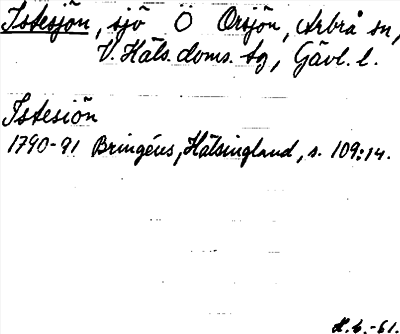 Istesjön, sjö Ö Orsjön, Arbrå sn,
V. Häls. doms. tg, Gävl. l.
Istesiön
1790-91 Bringéus, Hälsingland, s. 109:14.
H.b.-61.